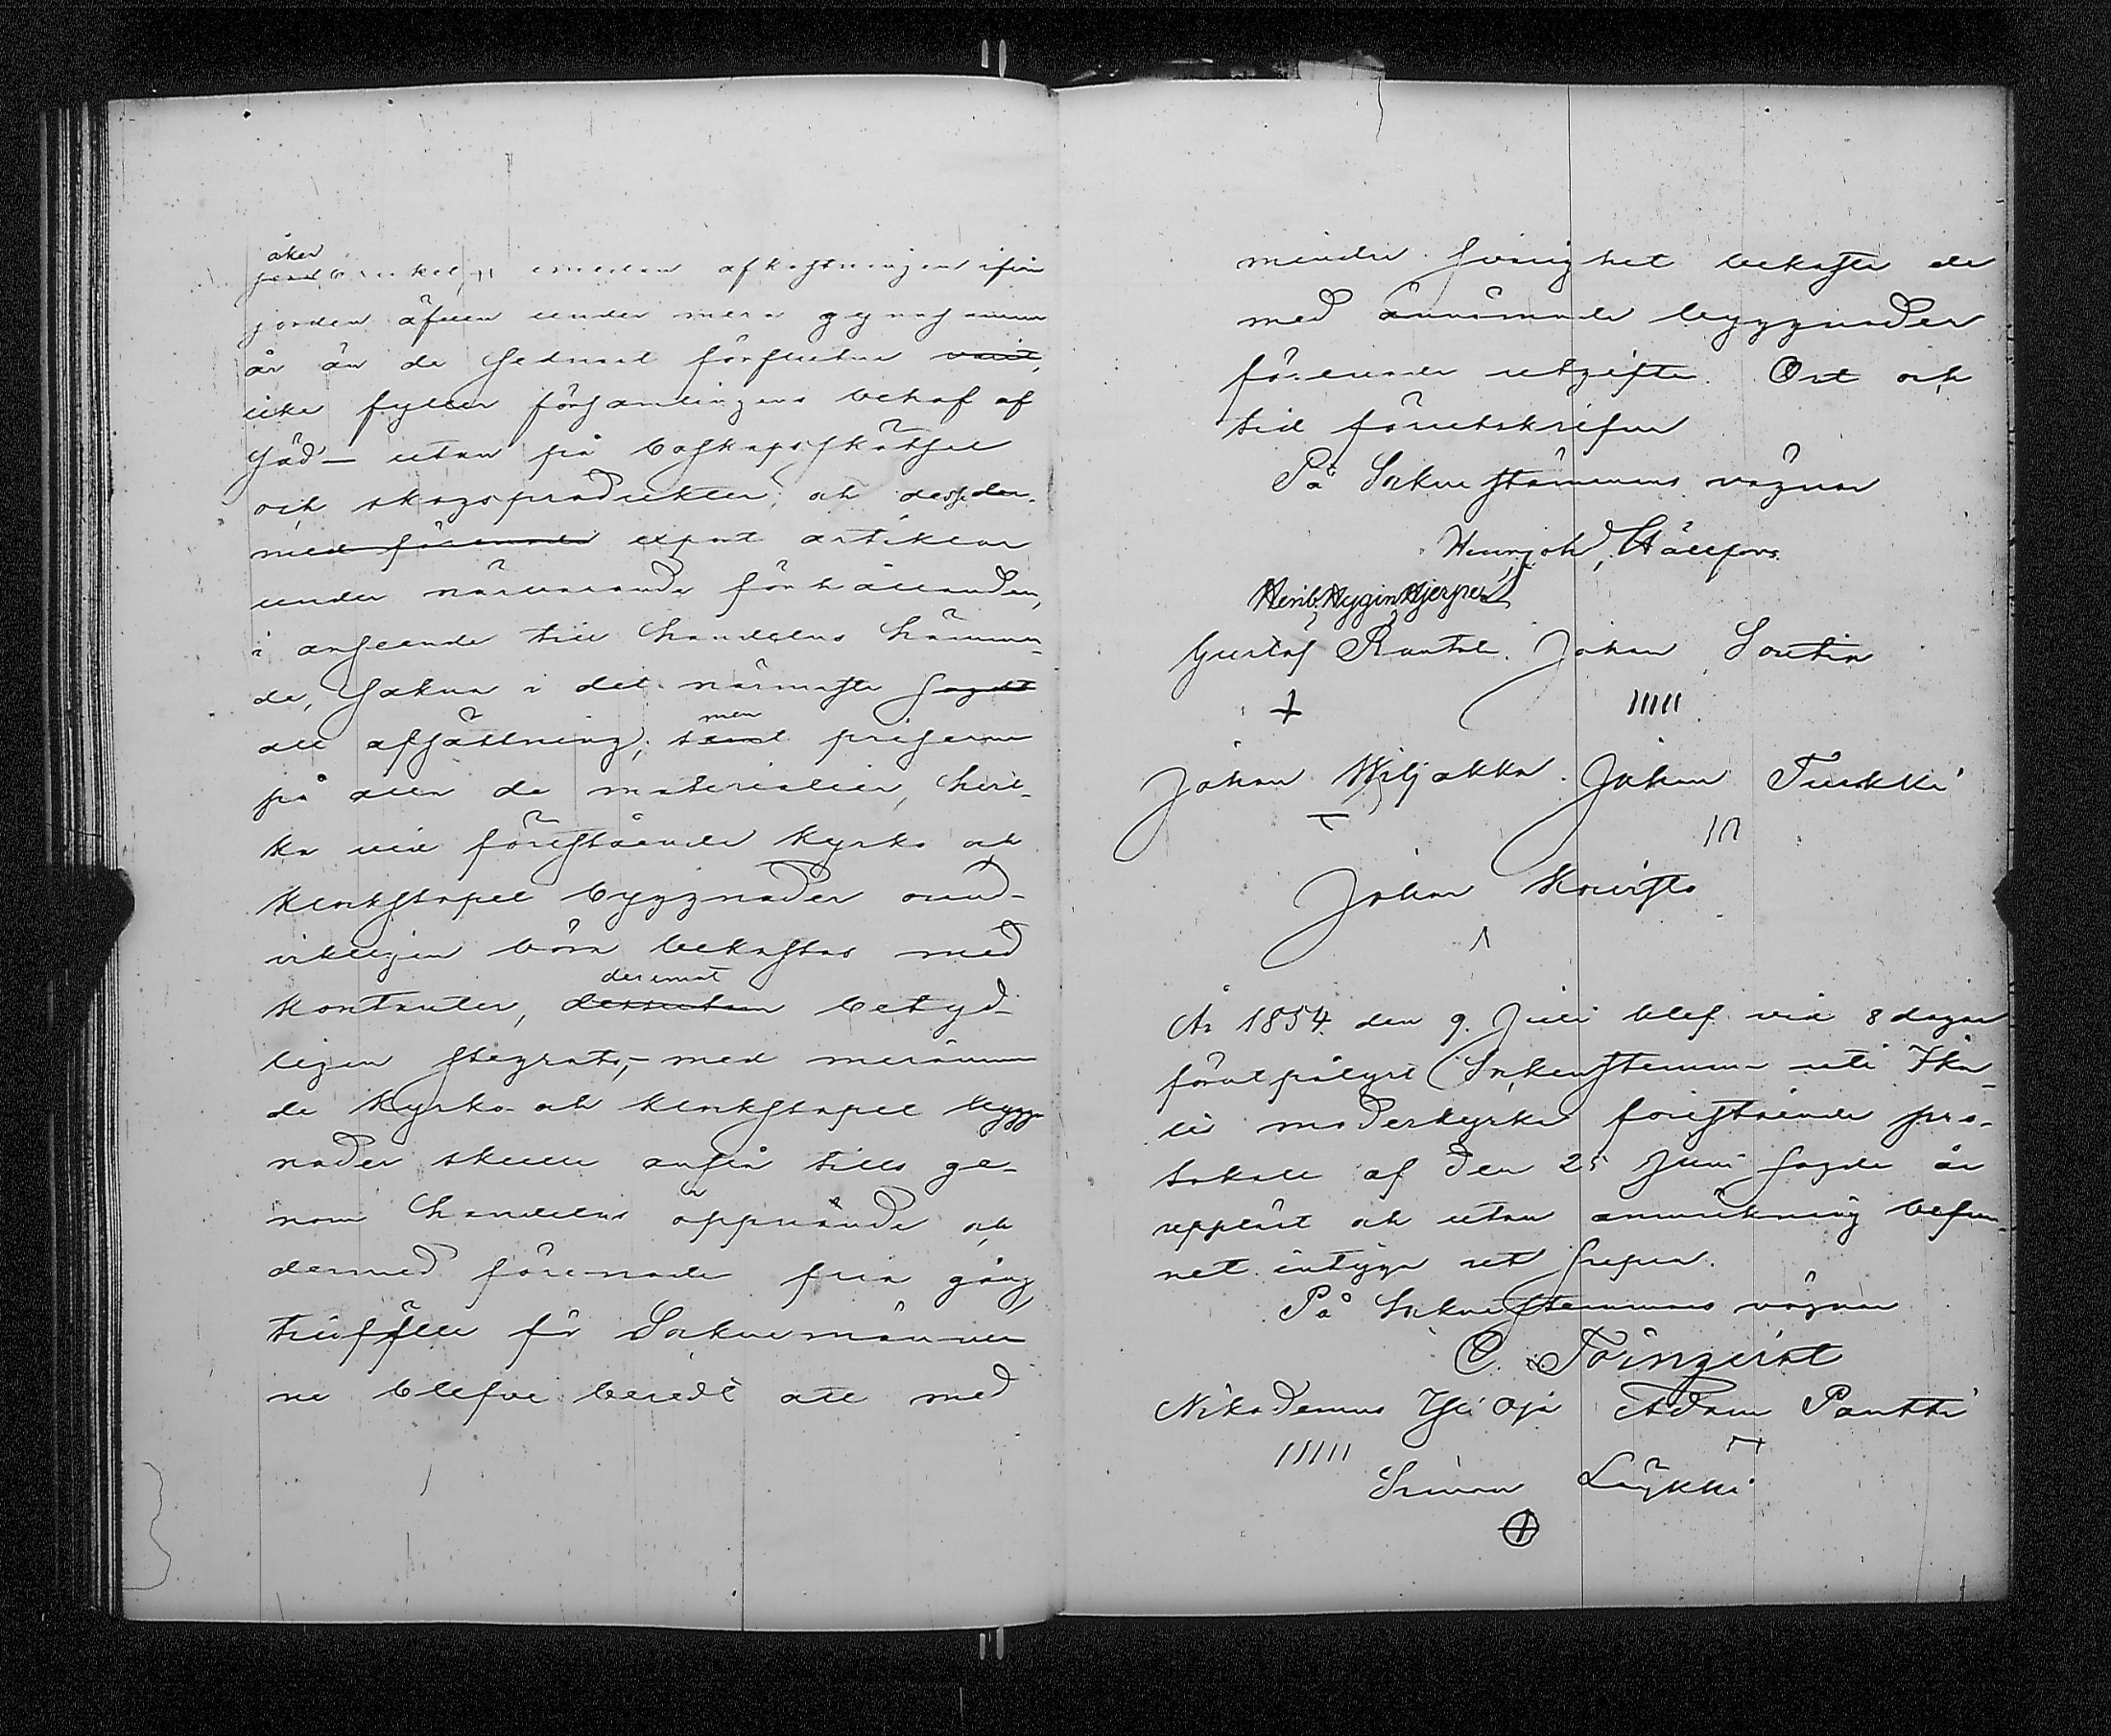 åker
jord bruket, emedan afkastningen ifrån
jorden äfven under mera gynnsamma
år än de sednast förflutna varit,
icke fyller församlingens behof af
säd — utan på boskapsskötsel
och skogsprodukter, och dess der-
med förenade export artiklar
under närvarande förhållanden,
i anseende till handelns hämman-
de, sakna i det närmaste sagdt
all afsättning; men samt priserna
på alla de materialier, hvil-
ka vid föreståendе kyrko och
klockstapel byggnader ound-
vikligen böra bekostas med
deremot
kontanter, dessutom betyd-
ligen stegrats, — med
de kyrko- och klockstapel bygg-
nader skulle anstå tills ge-
nom handelns öppnande och
dermed förenade fria gång
tillfälle för Sockenmännen
ne blefve beredt att med
mindre svårighet bekosta de
med ännämnde byggnader
förenade utgifter. Ort och
tid föruttskrifven
På Sockenstämmans vägnar
Henr. Joh. Hällfors
Henr. Hygin Hjerpe
Gustaf Rantala. Johan Soutin
+ IIIII
Johan Wiljakka. Johan Turkki
III
Johan Koivisto
År 1854 den 9. Juli blef vid 8 dagar
förut pålyst Sockenstämma uti Ika-
lis moderkyrka förestående pro-
tokoll af den 25 Juni sagde år
uppläst och utan anmärkning befun-
net intyga
På Sockenstämmans vägnar
C. Törnqvist
Nikodemus Yli Oja Adam Pantti
IIIII
Simon Lyykki